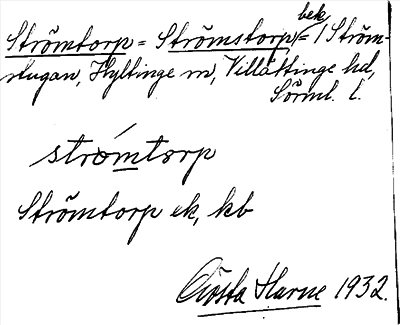 bek.
Strömtorp = Strömstorp (= Ström-
stugan, Hyltinge sn, Villåttinge hd,
Sörml. l.
strömtorp
Strömtorp ek, kb
Gösta Harne 1932.